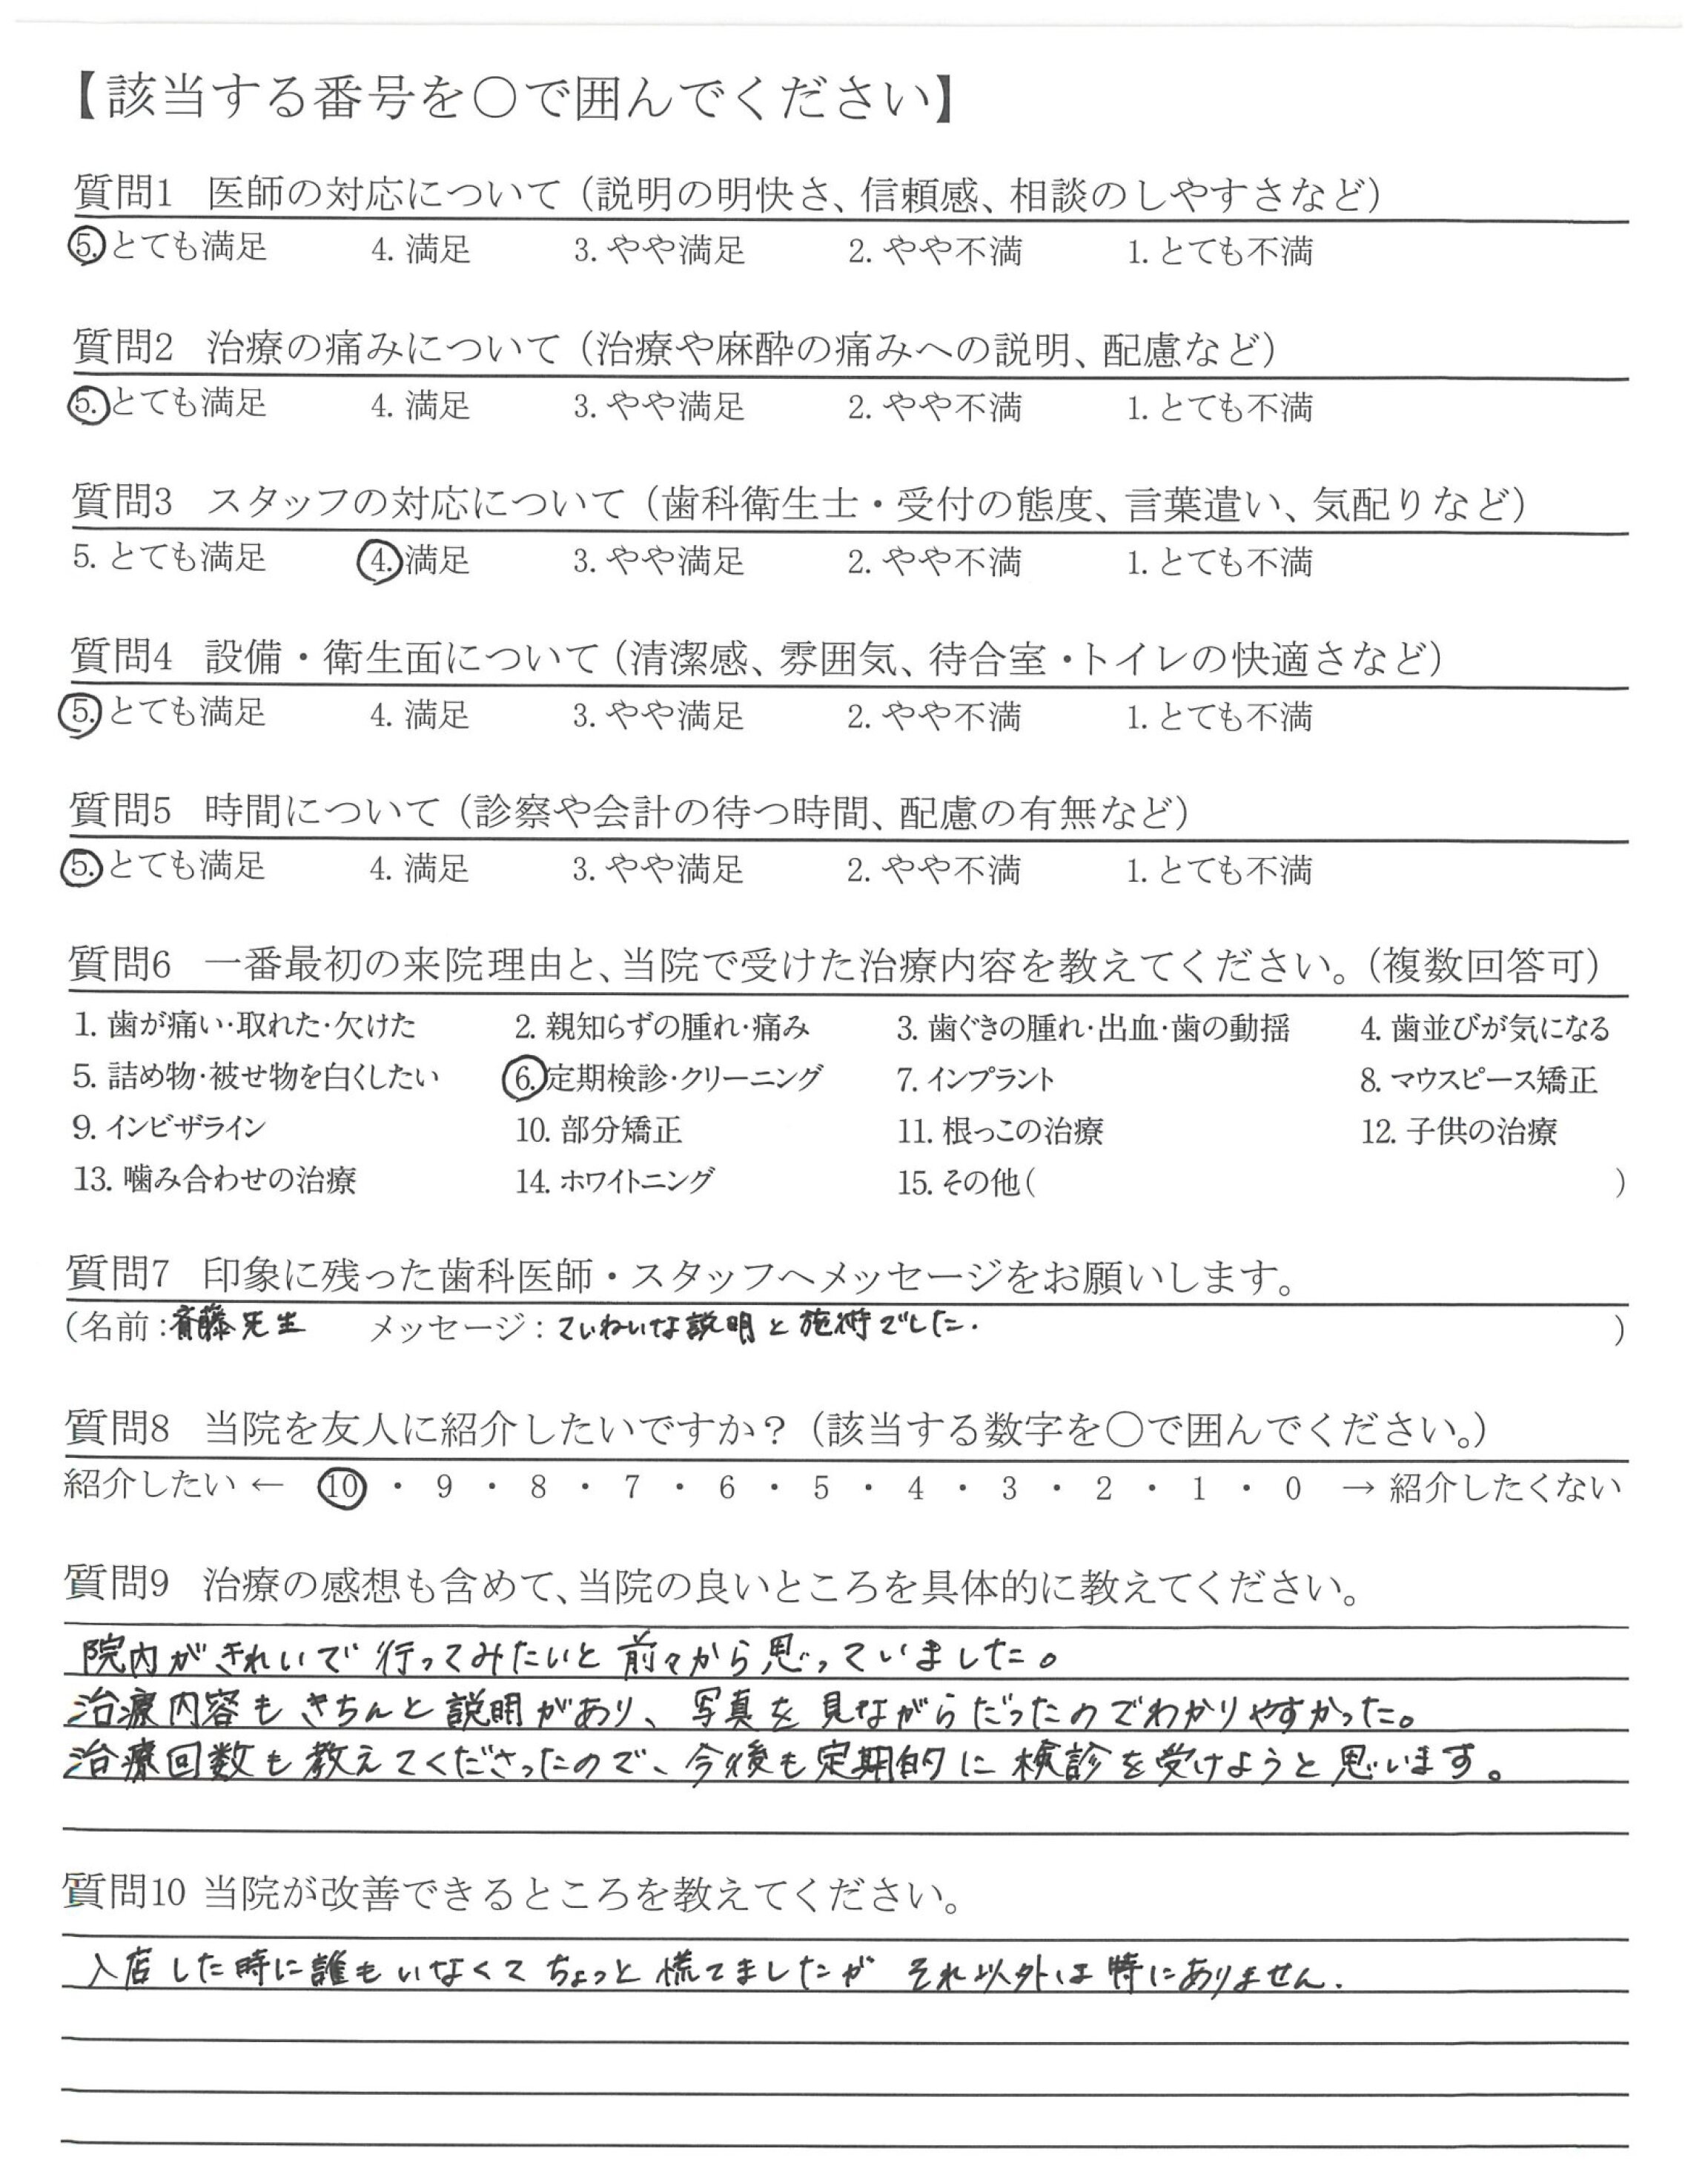 【該当する番号を○で囲んでください】
質問1 医師の対応について（説明の明快さ、信頼感、相談のしやすさなど）
5. とても満足 4. 満足 3. やや満足 2. やや不満 1. とても不満
質問2 治療の痛みについて（治療や麻酔の痛みへの説明、配慮など）
5. とても満足 4. 満足 3. やや満足 2. やや不満 1. とても不満
質問3 スタッフの対応について（歯科衛生士・受付の態度、言葉遣い、気配りなど）
5. とても満足 4. 満足 3. やや満足 2. やや不満 1. とても不満
質問4 設備・衛生面について（清潔感、雰囲気、待合室・トイレの快適さなど）
5. とても満足 4. 満足 3. やや満足 2. やや不満 1. とても不満
質問5 時間について（診察や会計の待つ時間、配慮の有無など）
5. とても満足 4. 満足 3. やや満足 2. やや不満 1. とても不満
質問6 一番最初の来院理由と、当院で受けた治療内容を教えてください。（複数回答可）
1. 歯が痛い・取れた・欠けた 2. 親知らずの腫れ・痛み 3. 歯ぐきの腫れ・出血・歯の動揺 4. 歯並びが気になる
5. 詰め物・被せ物を白くしたい 6. 定期検診・クリーニング 7. インプラント 8. マウスピース矯正
9. インビザライン 10. 部分矯正 11. 根っこの治療 12. 子供の治療
13. 噛み合わせの治療 14. ホワイトニング 15. その他（ ）
質問7 印象に残った歯科医師・スタッフへメッセージをお願いします。
（名前：斉藤先生 メッセージ：ていねいな説明と施術でした. ）
質問8 当院を友人に紹介したいですか？（該当する数字を○で囲んでください。）
紹介したい ← 10 ・ 9 ・ 8 ・ 7 ・ 6 ・ 5 ・ 4 ・ 3 ・ 2 ・ 1 ・ 0 → 紹介したくない
質問9 治療の感想も含めて、当院の良いところを具体的に教えてください。
院内がきれいで行ってみたいと前々から思っていました。
治療内容もきちんと説明があり、写真を見ながらだったのでわかりやすかった。
治療回数も教えてくださったので、今後も定期的に検診を受けようと思います。
質問10 当院が改善できるところを教えてください。
入店した時に誰もいなくてちょっと慌てましたが それ以外は特にありません.